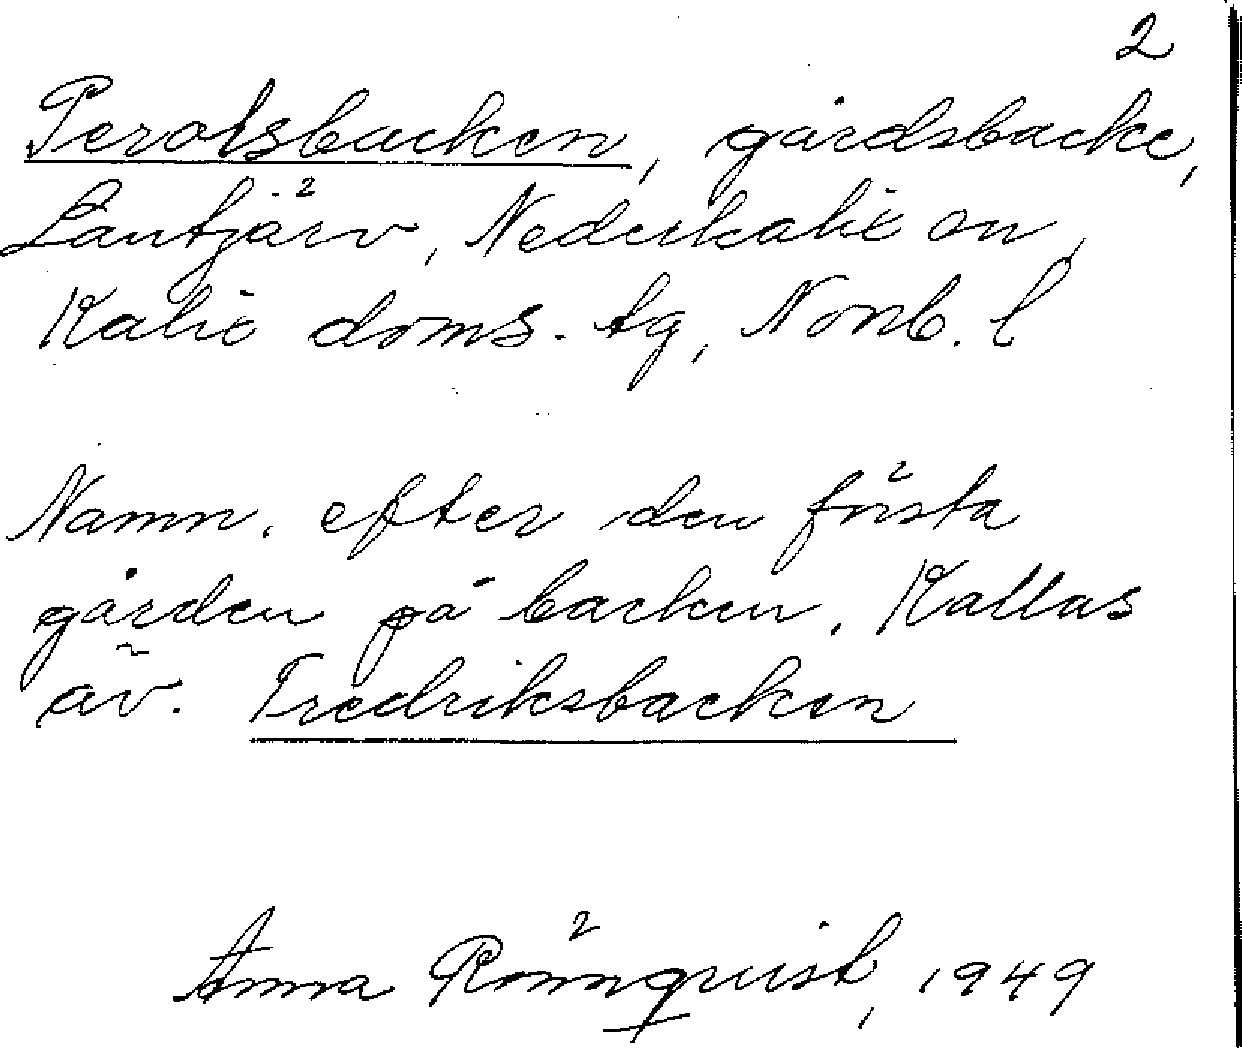 2
Perolsbacken, gårdsbacke,
Lantjärv, Nederkalix sn,
Kalix doms. tg, Norrb. l
Namn. efter den första
gården på backen. Kallas
äv. Fredriksbacken
Anna Rönnquist, 1949